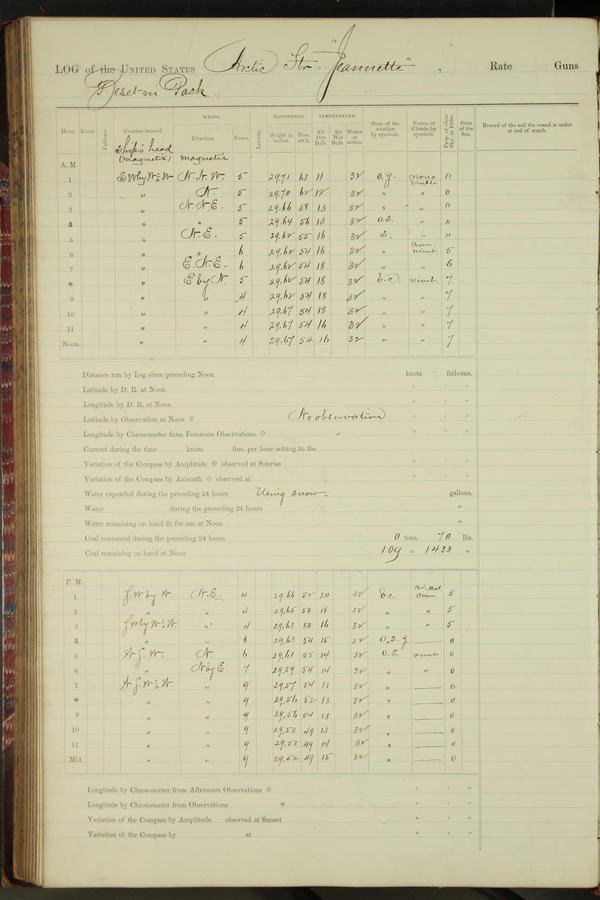 LOG of the UNITED STATES Arctic Str "Jeannette", Rate Guns
Beset in Pack
WINDS. BAROMETER. TEMPERATURE.
Hour. Knots. Fathoms. Courses steered. Direction. Force. Leeway. Height in inches. Ther. att'd. Air Dry Bulb. Air Wet Bulb. Water at surface. State of the weather by symbols. Forms of Clouds by symbols. Prop. of clear Sky, in 10ths. State of the Sea. Record of the sail the vessel is under at end of watch.
Ship's head (magnetic) magnetic
A. M.
1 N.N.W. 5 29.71 63 11 32 none visible 0
2 " N. 5 29.70 62 12 32 " " 0
3 " N.N.E. 5 29.66 58 13 32 " " 0
4 " " 5 29.64 56 13 32 " 0
5 " N.E. 5 29.62 55 16 32 " 0
6 " " 6 29.62 54 16 32 " 5
7 " E.N.E. 6 29.62 54 18 32 " " 6
8 " E by N. 5 29.62 54 18 32 b.c. numb. 7
9 " " 4 29.62 54 18 32 " " 7
10 " " 4 29.67 54 18 32 " " 7
11 " " 4 29.67 54 16 32 " " 7
Noon. " " 4 29.67 54 16 32 " " 7
Distance run by Log since preceding Noon knots fathoms.
Latitude by D. R. at Noon
Longitude by D. R. at Noon
Latitude by Observation at Noon No observation
Longitude by Chronometer from Forenoon Observations "
Current during the time knots fms. per hour setting to the
Variation of the Compass by Amplitude observed at Sunrise
Variation of the Compass by Azimuth observed at
Water expended during the preceding 24 hours Using snow gallons.
Water during the preceding 24 hours "
Water remaining on hand fit for use at Noon "
Coal consumed during the preceding 24 hours 0 tons. 70 lbs.
Coal remaining on hand at Noon 109 " 1433 "
P. M.
1 N.E. 4 29.66 52 20 32 b.c. 5
2 " " 4 29.65 50 18 32 " " 5
3 " 4 29.63 50 16 32 " " 5
4 " " 6 29.63 54 15 32 0
5 N. 6 29.61 55 14 32 0
6 " N by E. 7 29.59 54 14 32 " " 0
7 " 9 29.57 54 13 32 " 0
8 " " 9 29.56 52 13 32 " 0
9 " " 9 29.56 54 13 32 " 0
10 " " 9 29.53 49 13 32 " 0
11 " " 9 29.53 49 14 32 " 0
Mid. " " 9 29.52 49 15 32 " 0
Longitude by Chronometer from Afternoon Observations
Longitude by Chronometer from Observations
Variation of the Compass by Amplitude observed at Sunset
Variation of the Compass by at